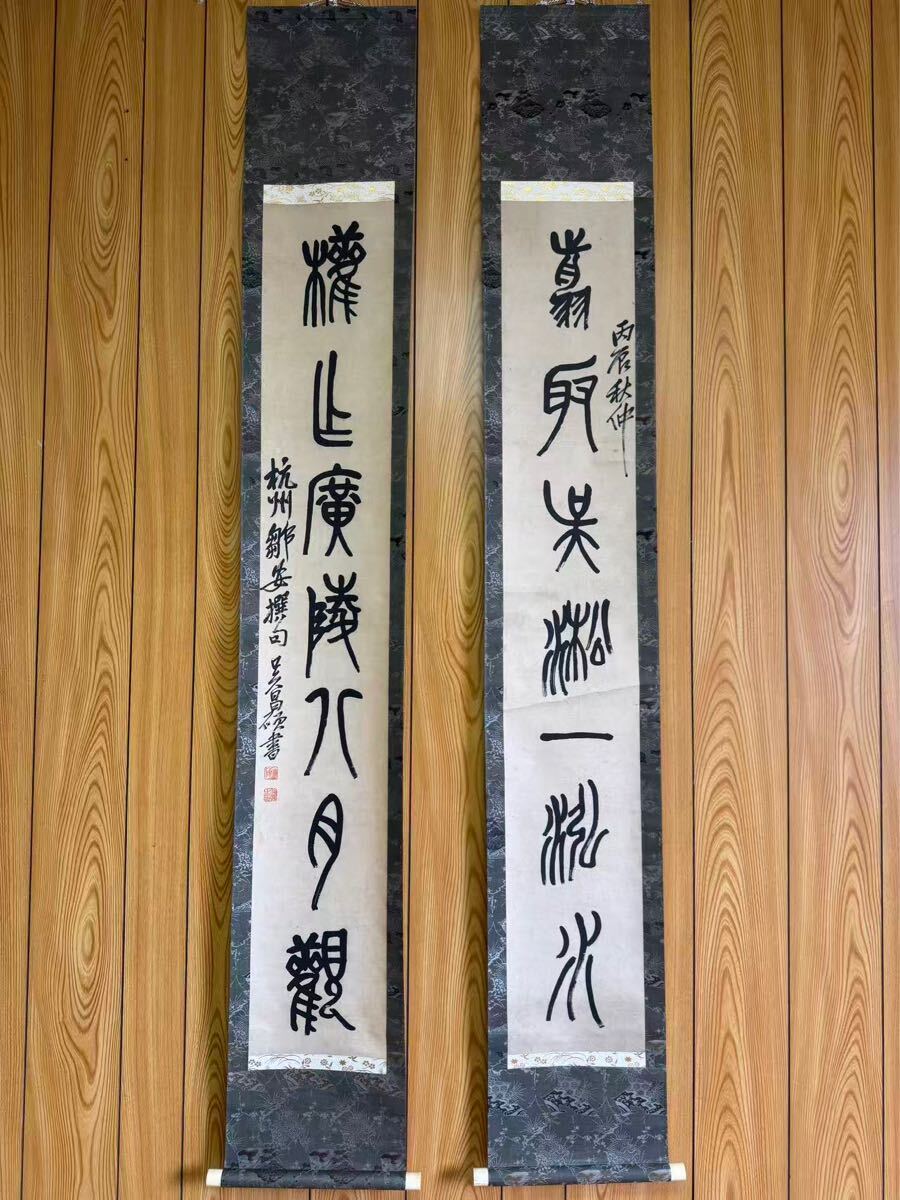 翦取吳淞一泓水
丙辰秋仲
權乍廣陵八月觀
杭州鄒安撰句 吳昌碩書